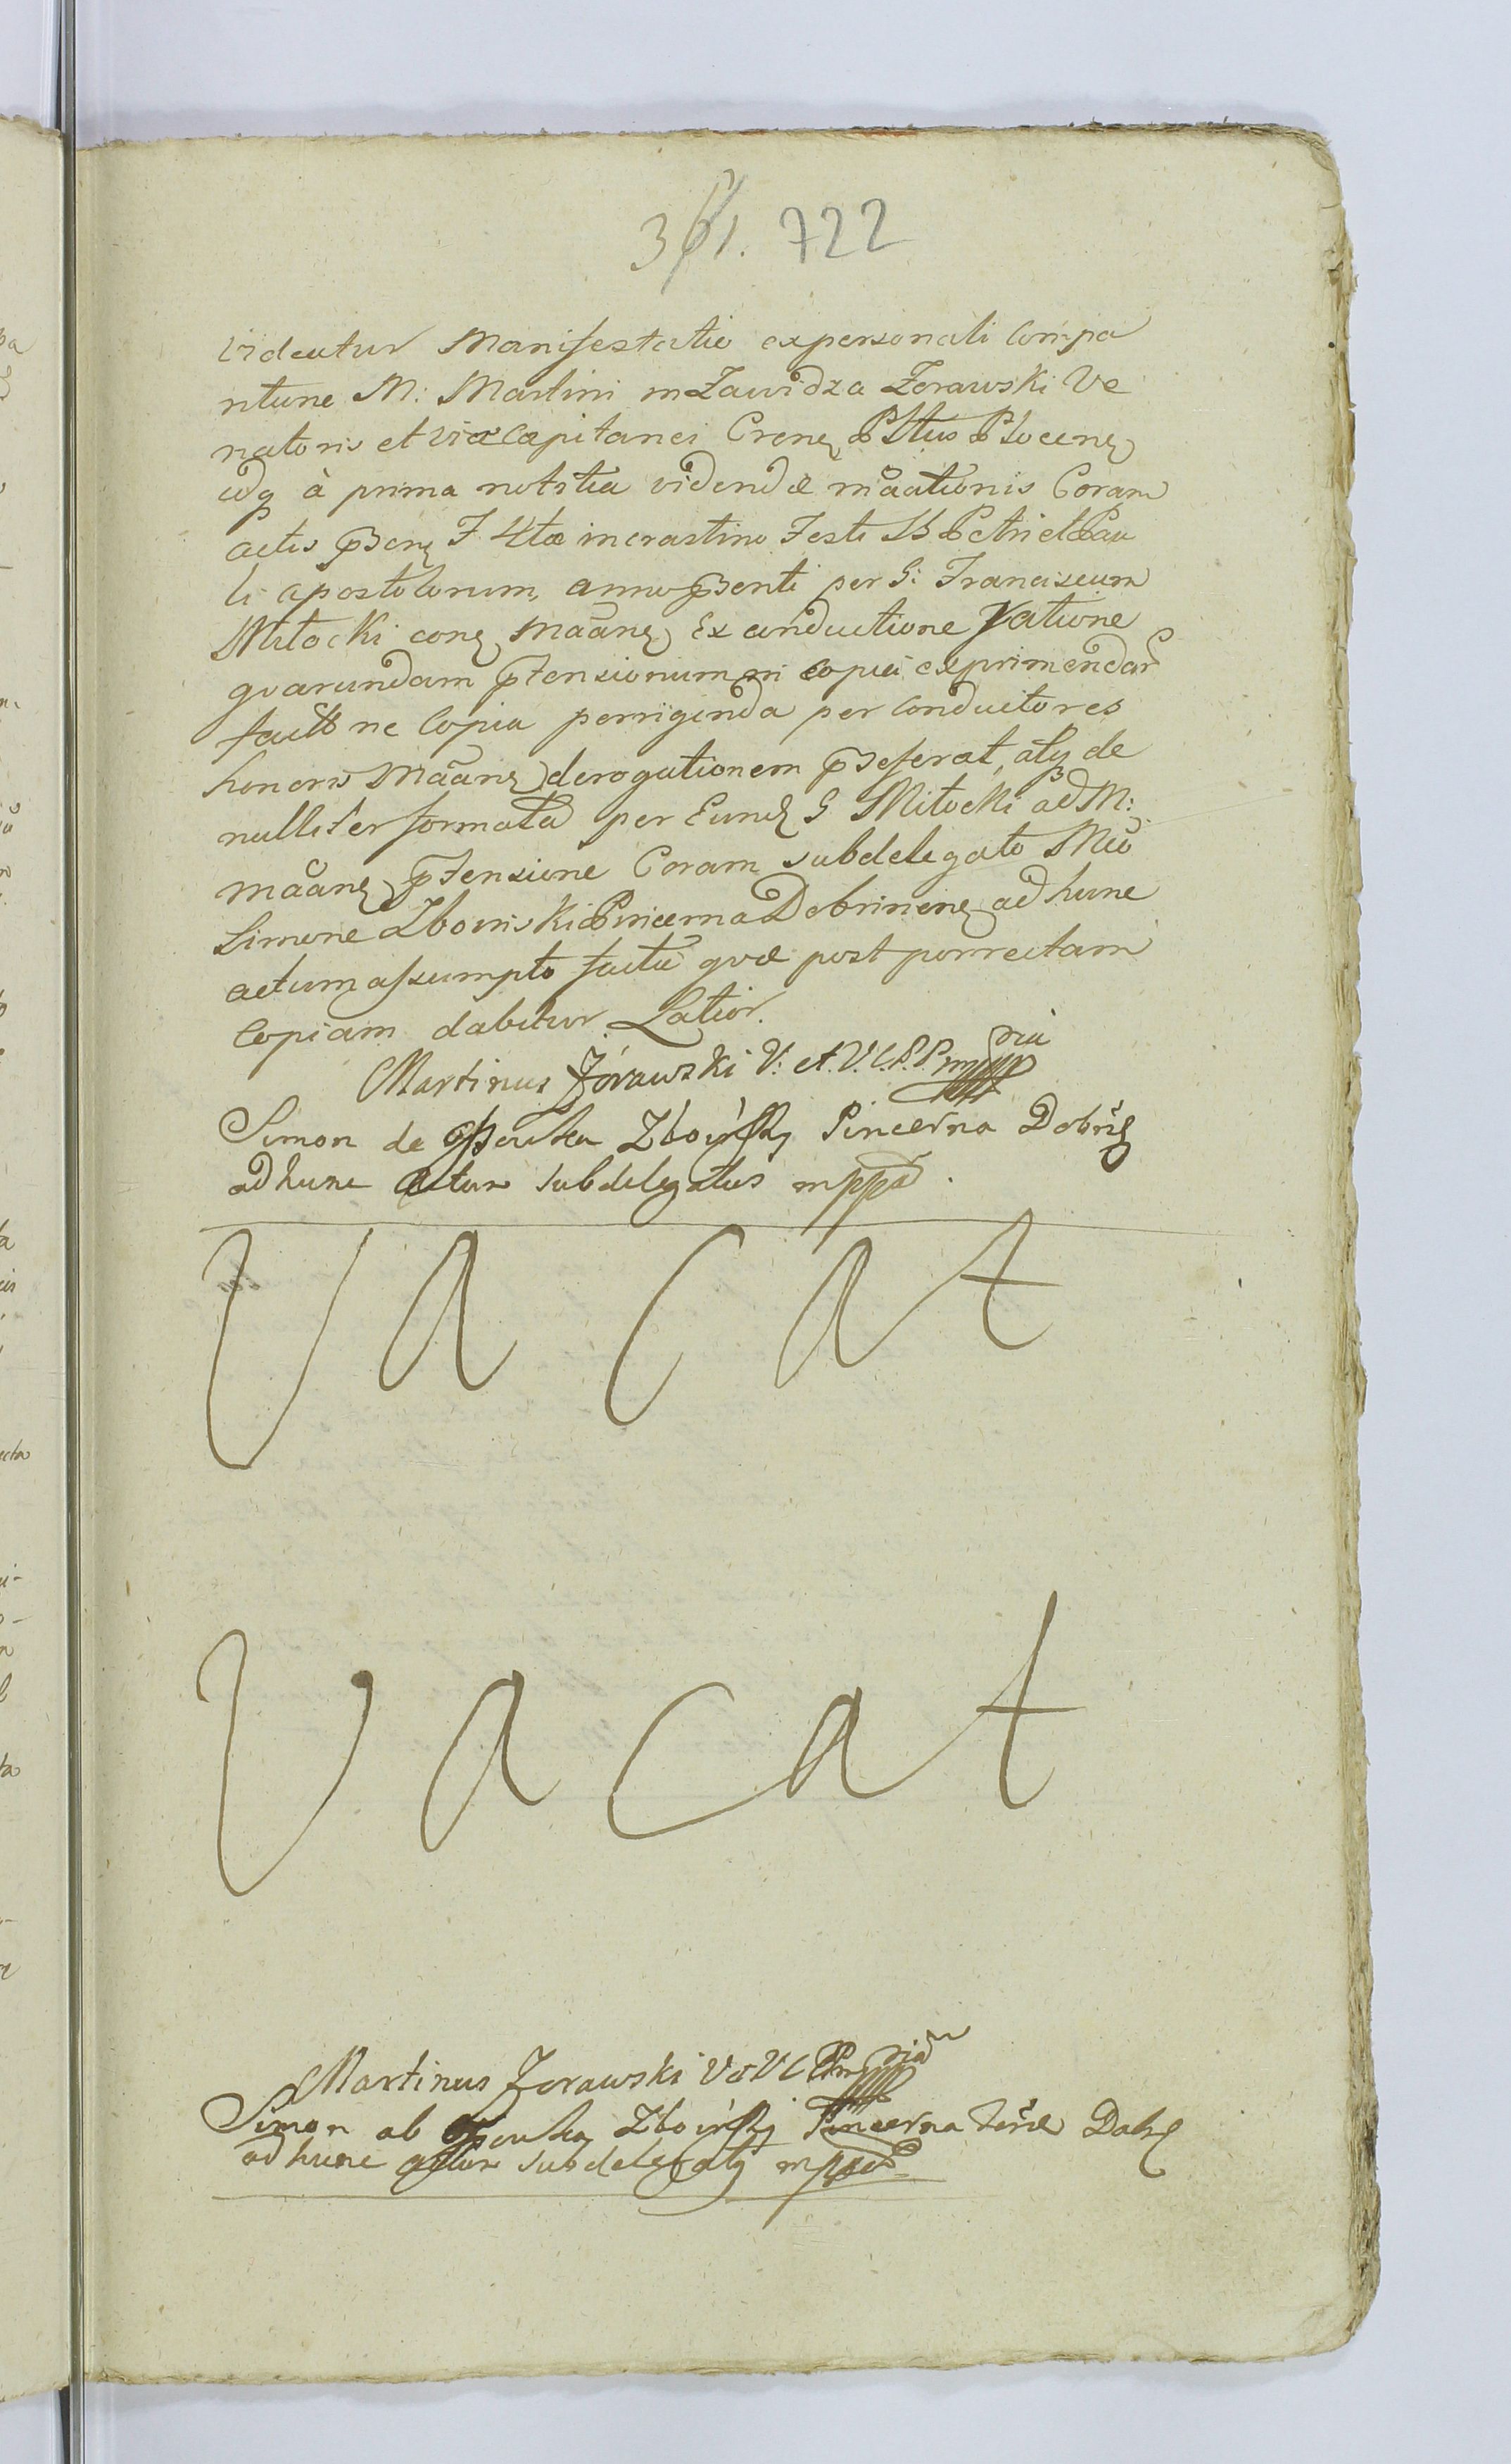 361. 722
Videatur Manifestatio ex personali Compa
ritione M: Martini in Zawidza Zorawski Ve
natoris et Vice Capitanei Crenę Pttus Plocenę
idq à prima notitia videndæ mãationis Coram
actis pſenę F 4tæ in crastino Festi SS Petri et Pau
li apostolorum, anno pſenti per G: Franciscum
Mitocki conę Mãanę Ex conductione Ratione
quarundam ptensionum in copia exprimendar
factæ ne Copia porrigenda per Conductores
honoris Mãanę derogationem pſeferat, atq de
nulliter formata per Eundę G Mitocki ad M:
mãanę ptensione Coram subdelegato Mco
Simone Zboinski Pincerna Dobrinenę ad hunc
actum assumpto factā quæ post porrectam
Copiam dabitur Latior.
Martinus Zórawski V: et. V. C. P. P. mppria
Simon de Zboińsky Pincerna Dobrę
ad hunc Actum Subdelegatus mppa.
Vacat
Vacat
Martinus Zorawski V et V C P P mppria
Simon ab Zboińsky Pincerna Terræ Dobrę
ad hunc actum Subdelegatq mppa